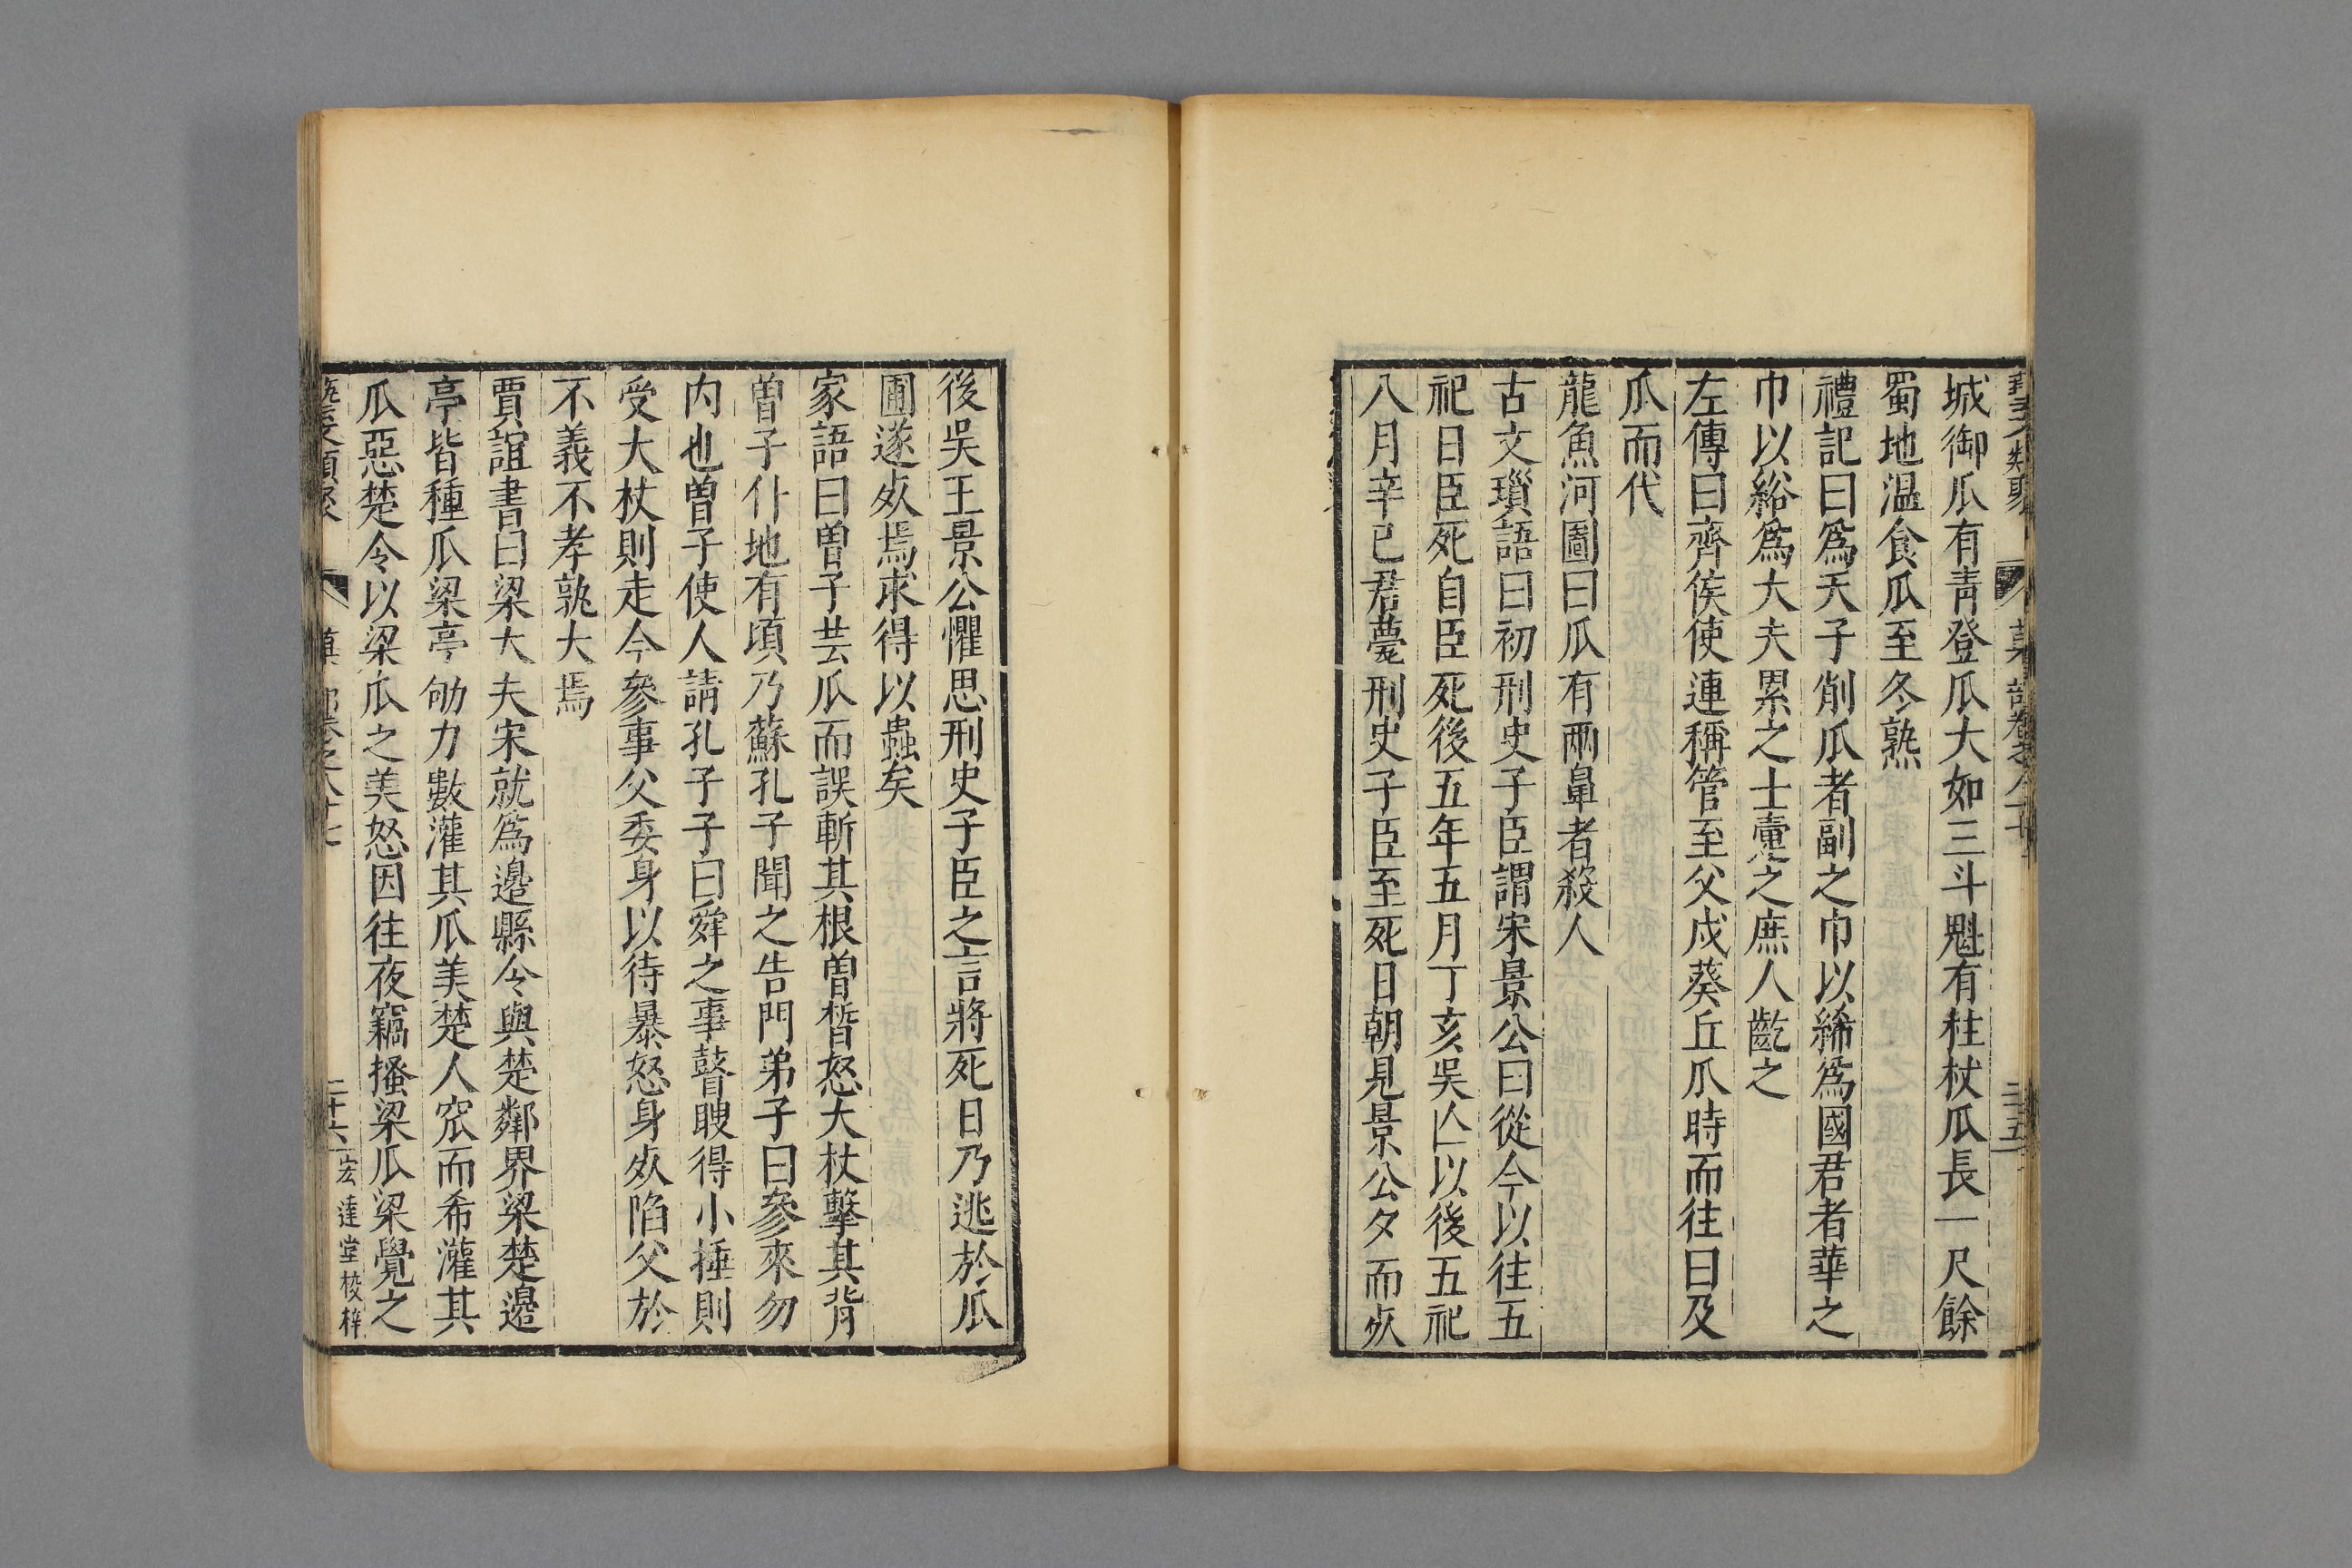 城御瓜有青登瓜大如三斗魁有柱杖瓜長一尺餘
蜀地温食瓜至冬熟
禮記曰爲天子削瓜者副之巾以絺爲國君者華之
巾以綌爲大夫累之士疐之庶人齕之
左傳曰齊侯使連稱管至父戍葵丘瓜時而往曰及
瓜而代
龍魚河圖曰瓜有兩鼻者殺人
古文瑣語曰初刑史子臣謂宋景公曰從今以往五
祀日臣死自臣死後五年五月丁亥吳亾以後五祀
八月辛巳君薨刑史子臣至死日朝見景公夕而㱙
後吳王景公懼思刑史子臣之言將死日乃逃於瓜
圃遂㱙焉求得以蟲矣
家語曰曽子芸瓜而誤斬其根曽晳怒大杖擊其背
曽子仆地有頃乃蘇孔子聞之告門弟子曰參來勿
内也曽子使人請孔子子曰舜之事瞽瞍得小捶則
受大杖則走今參事父委身以待暴怒身㱙陷父於
不義不孝孰大焉
賈誼書曰梁大夫宋就爲邊縣令與楚鄰界梁楚邊
亭皆種瓜梁亭劬力數灌其瓜美楚人窳而希灌其
瓜惡楚令以梁瓜之美怒因往夜竊搔梁瓜梁覺之
二十六
宏達堂校梓